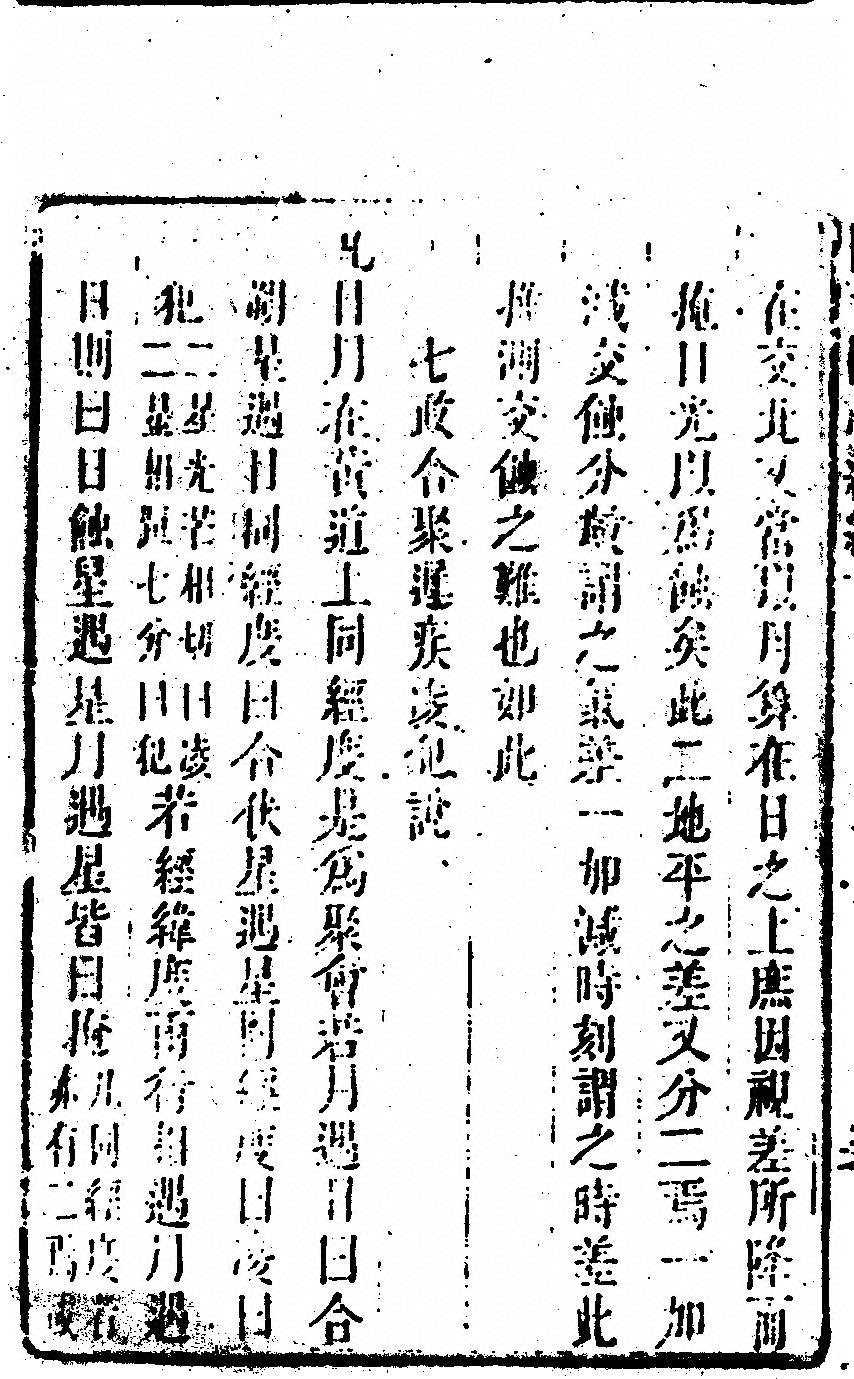 在交北又當以月算在日之上應因視差所降而
掩日光以爲蝕矣此二地平之差又分二焉一加
淺交蝕分數謂之氣差一加減時刻謂之時差此
推測交蝕之難也如此
七政合聚遲疾淩犯說
凡日月在黃道上同經度是爲聚會若月遇日曰合
朔星遇日同經度曰合伏星遇星同經度曰淩曰
犯二星光芒相切曰淩二星相距七分曰犯若經緯度南行相遇月遇
日則曰日蝕星遇星月遇星皆曰掩凡同經度者亦有二焉或